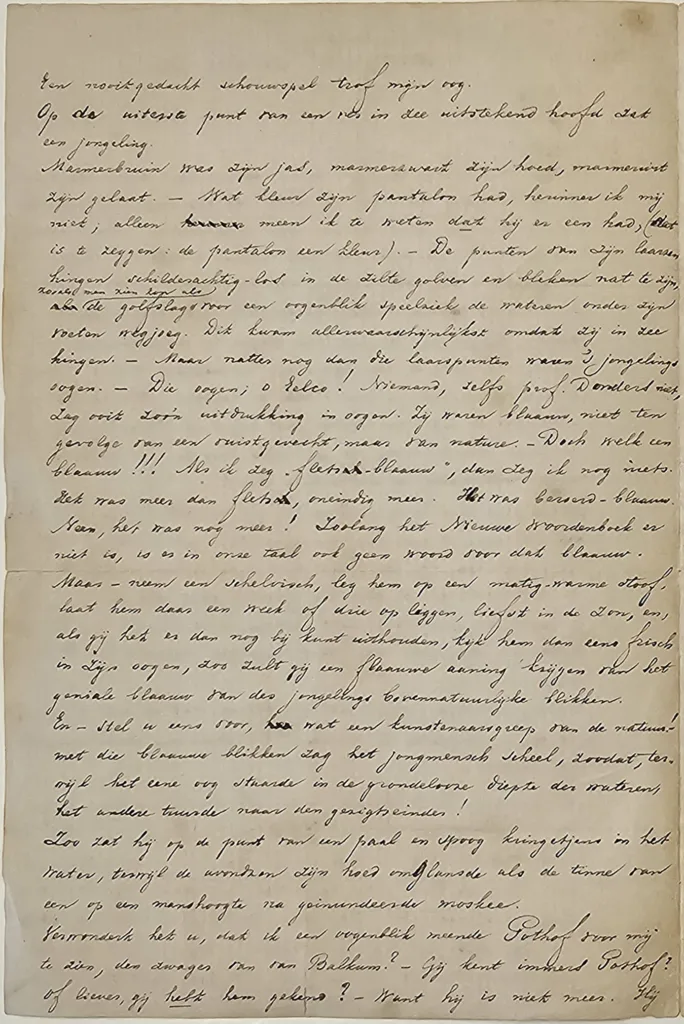 Een nooitgedacht schouwspel trof mijn oog.
Op de uiterste punt van een ver in zee uitstekend hoofd zat
een jongeling.
Marmerbruin was zijn jas, marmerzwart zijn hoed, marmerwit
zijn gelaat. — Wat kleur zijn pantalon had, herinner ik mij
niet; alleen meen ik te weten dat hij er een had, (dat
is te zeggen: de pantalon een kleur). — De punten van zijn laarzen
hingen schilderachtig-los in de zilte golven en bleken nat te zijn,
zoodra men zien kon als
de golfslag voor een oogenblik speelziek de wateren onder zijn
voeten wegjoeg. Dit kwam allerwaarschijnlijkst omdat zij in zee
hingen. — Maar natter nog dan die laarspunten waren 's jongelings
oogen. — Die oogen; o Eelco! Niemand, zelfs prof. Donders niet,
zag ooit zóó'n uitdrukking in oogen. Zij waren blaauw, niet ten
gevolge van een vuistgevecht, maar van nature. — Doch welk een
blaauw!!! Als ik zeg „flets-blaauw", dan zeg ik nog niets.
Het was meer dan flets, oneindig meer. Het was beroerd-blaauw.
Neen, het was nog meer! Zoolang het Nieuwe Woordenboek er
niet is, is er in onze taal ook geen woord voor dat blaauw.
Maar – neem een schelvisch, leg hem op een matig-warme stoof,
laat hem daar een week of drie op liggen, liefst in de zon, en,
als gij het er dan nog bij kunt uithouden, kijk hem dan eens frisch
in zijn oogen, zoo zult gij een flaauwe aaning krijgen van het
geniale blaauw van des jongelings bovennatuurlijke blikken.
En – stel u eens voor, wat een kunstenaarsgreep van de natuur!
met die blaauwe blikken zag het jongmensch scheel, zoodat, ter-
wijl het eene oog staarde in de grondelooze diepte der wateren,
het andere tuurde naar den gezigtseinder!
Zoo zat hij op de punt van een paal en spoog kringetjens in het
water, terwijl de avondzon zijn hoed omglansde als de tinne van
een op een manshoogte na geinundeerde moskee.
Verwondert het u, dat ik een oogenblik meende Pothof voor mij
te zien, den zwager van van Balkum? — Gij kent immers Pothof?
of liever, gij hebt hem gekend? – Want hij is niet meer. Hij